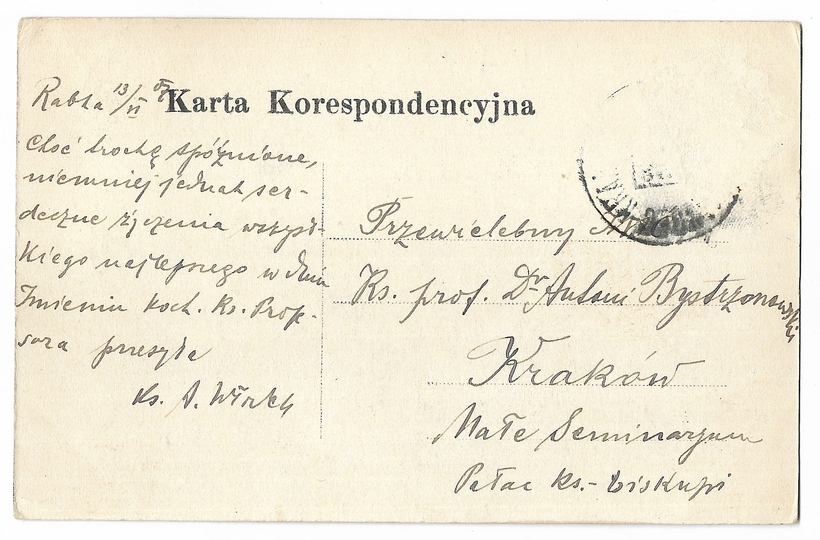 Karta Korespondencyjna
Rabka 13/VI
choć trochę spóźnione,
niemniej jednak ser-
deczne życzenia wszyst-
kiego najlepszego w dniu
Imienin koch. Ks. Prof-
sora przesyła
Ks. A.
Przewielebny
Ks. prof. Dr Antoni Bystrzonowski
Kraków
Małe Seminaryum
Pałac Ks.-biskupi